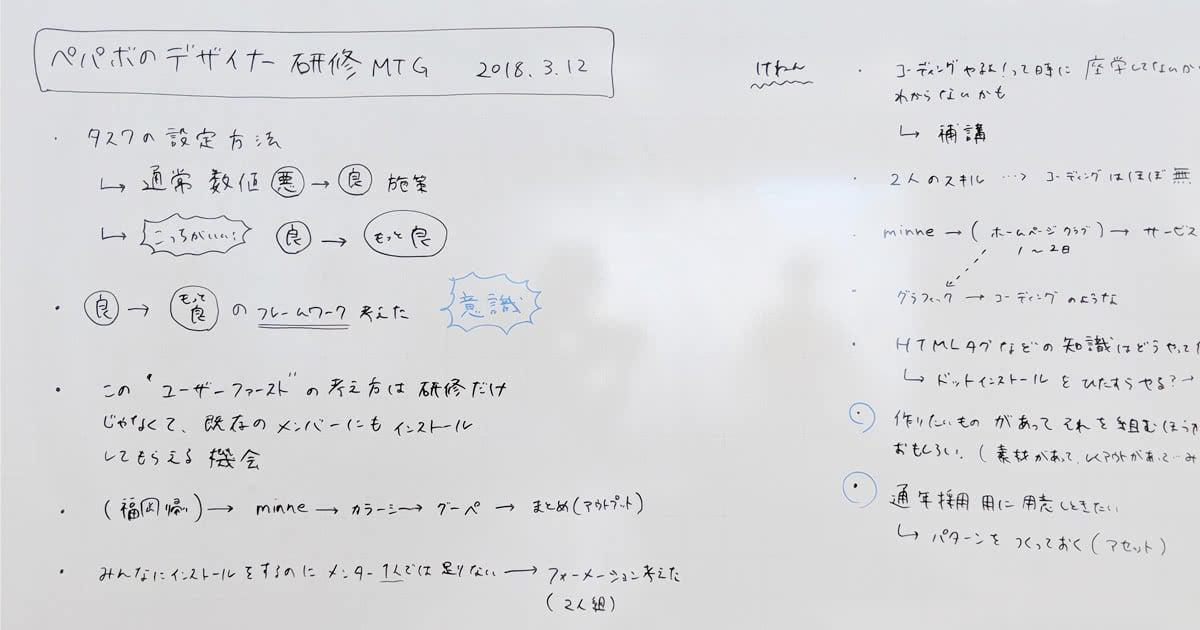 ペパボのデザイナー 研修 MTG 2018.3.12
・ タスクの設定方法
↳ 通常 数値 悪 → 良 施策
↳ こっちがいい! 良 → もっと良
・ 良 → もっと良 の フレームワーク 考えた
意識
・ この "ユーザーファースト" の考え方は 研修だけ
じゃなくて、既存の メンバーにも インストール
してもらえる 機会
・ (福岡帰) → minne → カラーミー → グーペ → まとめ(アウトプット)
・ みんなにインストールをするのに メンター 1人では 足りない → フォーメーション考えた
(2人組)
けねん
・ コーディングやるよ!って時に 座学してないから
わからないかも
↳ 補講
・ 2人のスキル …→ コーディングはほぼ 無
・ minne → (ホームページ クラブ) → サービス
1〜2日
・ グラフィック → コーディング のような
・ HTMLタグなどの 知識はどうやって
↳ ドットインストール を ひたすらやる? →
・ 作りたいもの があって それを 組むほうが
おもしろい。(素材があって、レイアウトがあって…み
・ 通年採用 用に 用意しときたい
↳ パターンを つくっておく (アセット)